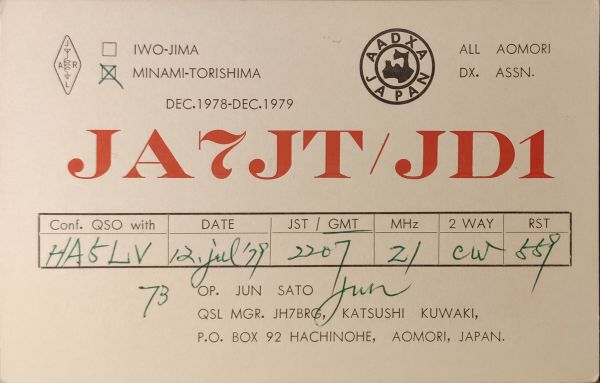 JARL
IWO-JIMA
MINAMI-TORISHIMA
AADXA
JAPAN
ALL AOMORI
DX. ASSN.
DEC.1978-DEC.1979
JA7JT/JD1
Conf. QSO with DATE JST / GMT MHz 2 WAY RST
HA5LV 12. Jul '79 2207 21 CW 559
73 OP. JUN SATO Jun
QSL MGR. JH7BRG, KATSUSHI KUWAKI,
P.O. BOX 92 HACHINOHE, AOMORI, JAPAN.